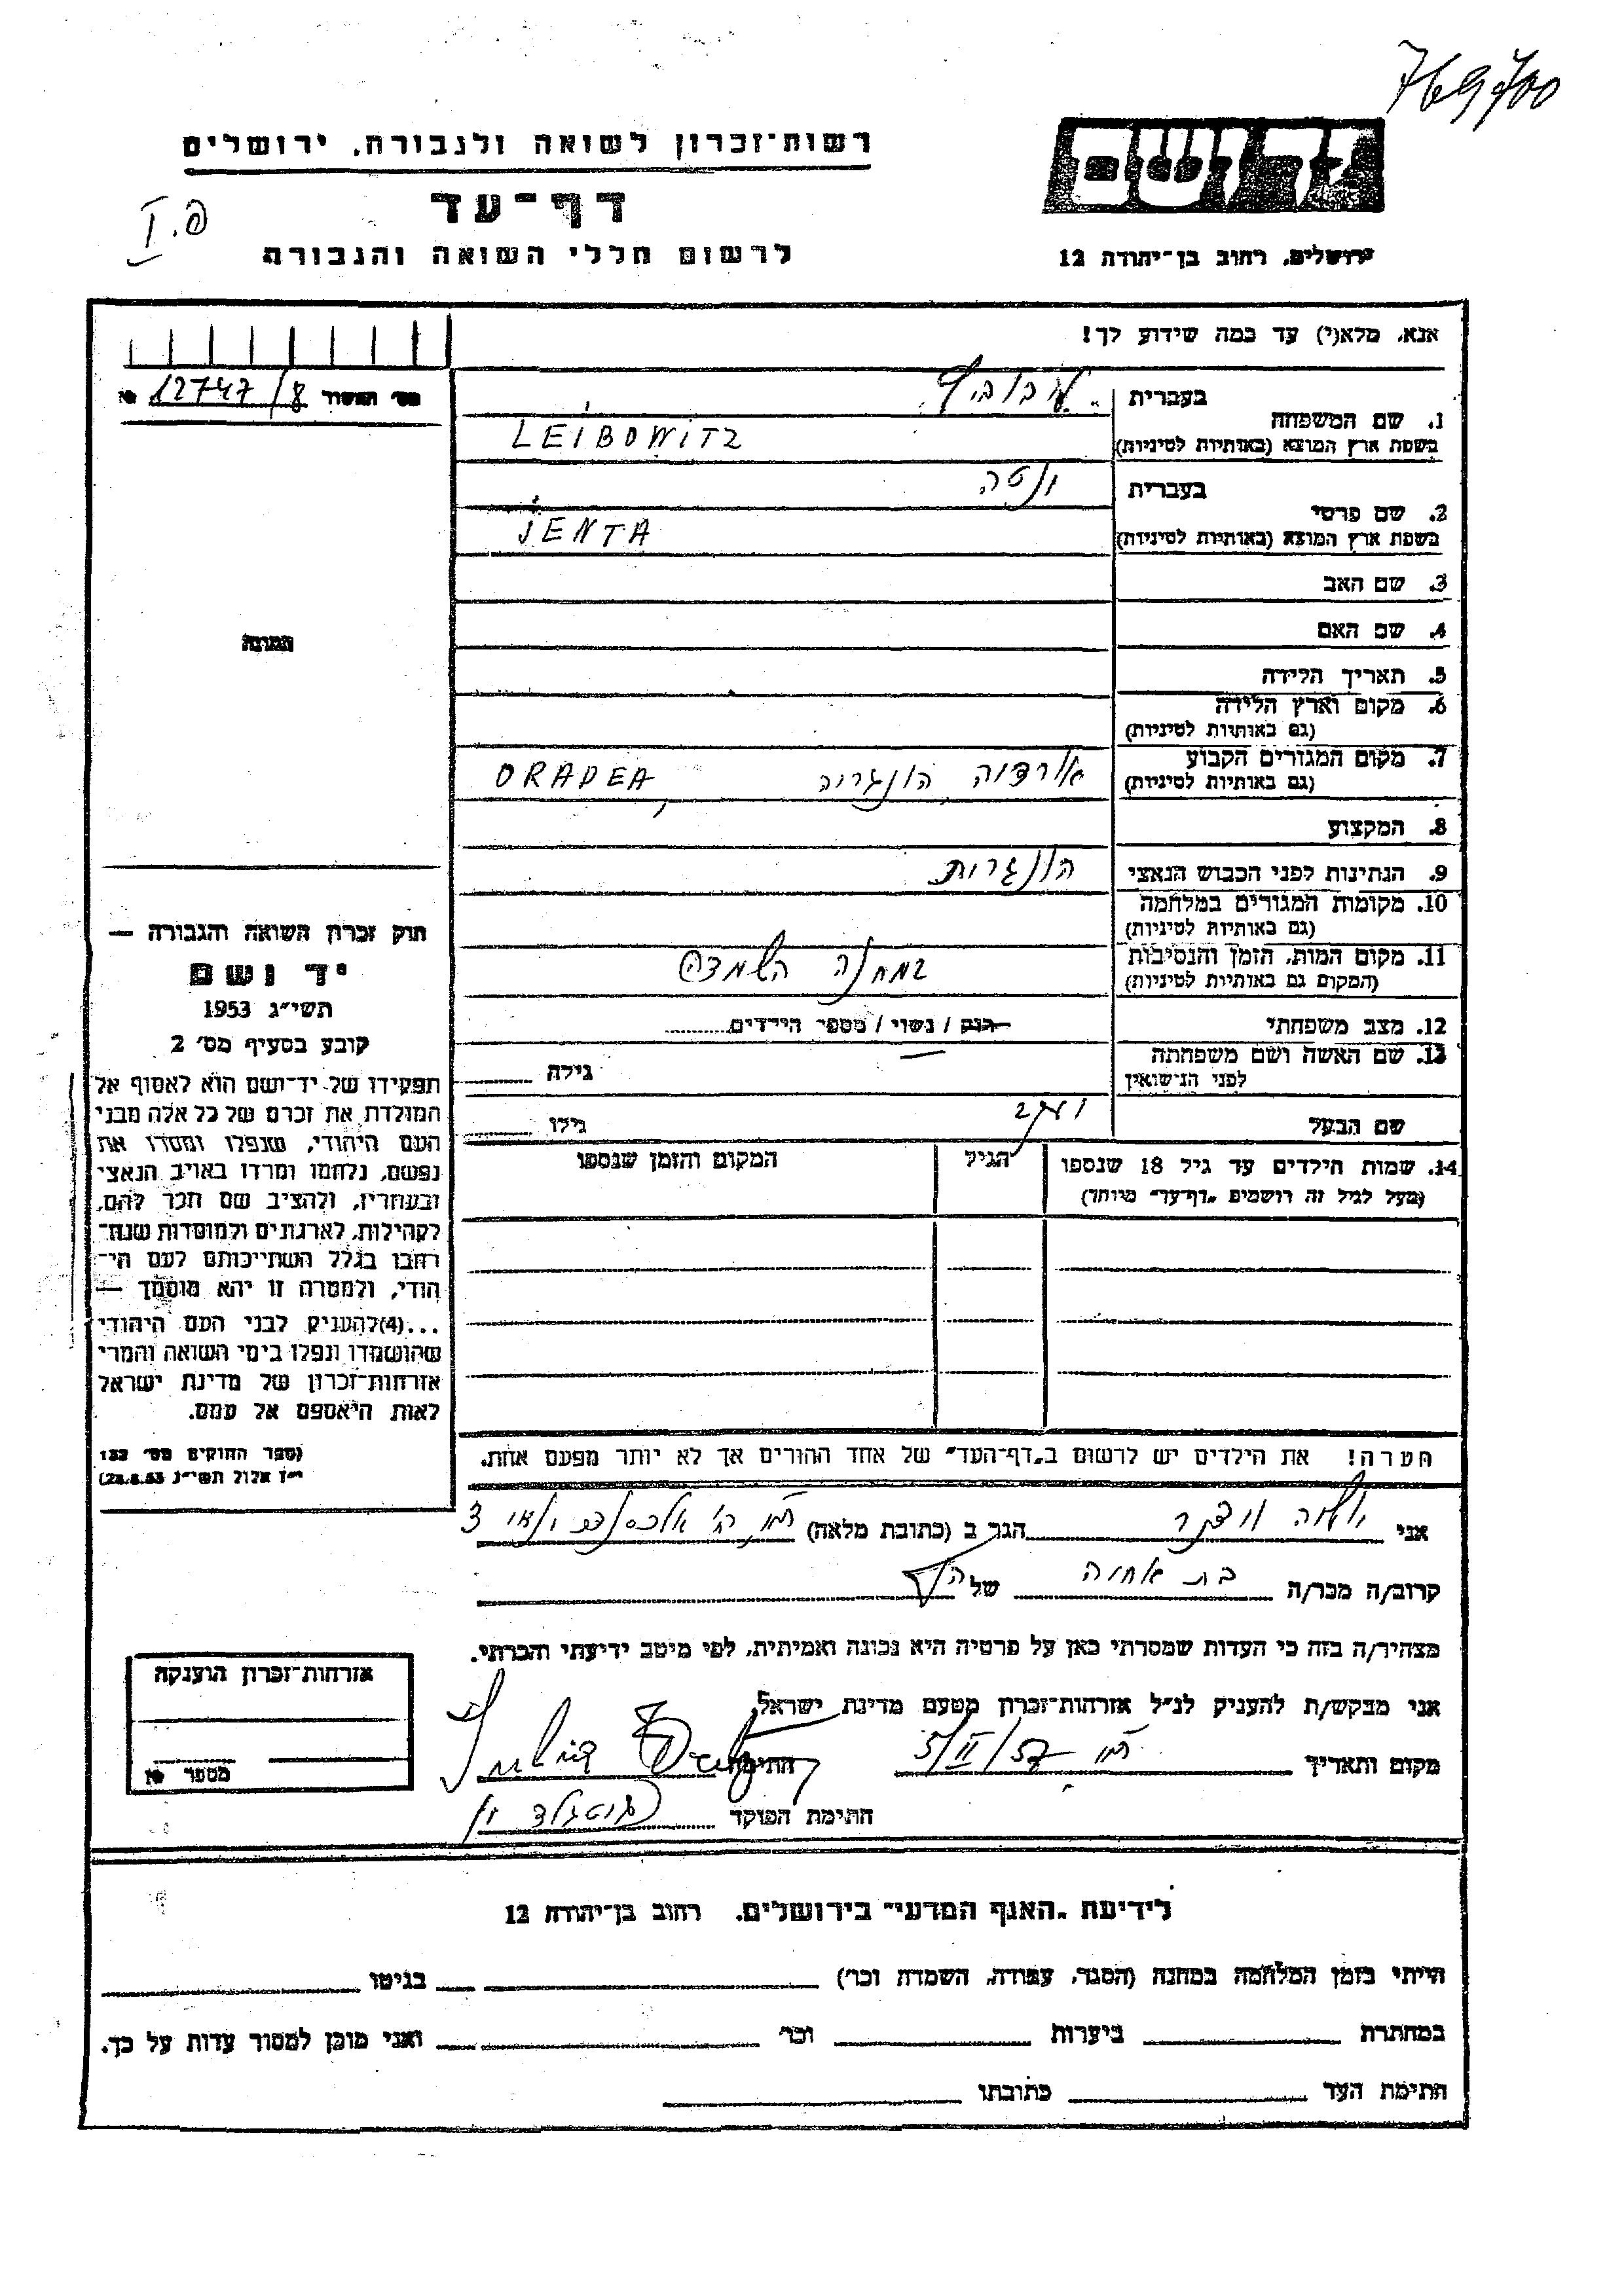 769700
רשות־זכרון לשואה ולגבורה, ירושלים
דף־עד
לרשום חללי השואה והגבורה
יד ושם
ירושלים, רחוב בן־יהודה 12
אנא, מלא(י) עד כמה שידוע לך!
12747/8
בעברית
1. שם המשפחה
בשפת ארץ המוצא (באותיות לטיניות)
LEIBOWITZ
בעברית
2. שם פרטי
בשפת ארץ המוצא (באותיות לטיניות)
ינטה
JENTA
3. שם האב
4. שם האם
5. תאריך הלידה
6. מקום וארץ הלידה
(גם באותיות לטיניות)
7. מקום המגורים הקבוע
(גם באותיות לטיניות)
אורדיה הונגריה ORADEA
8. המקצוע
9. הנתינות לפני הכבוש הנאצי הונגרית
10. מקומות המגורים במלחמה
(גם באותיות לטיניות)
11. מקום המות, הזמן והנסיבות
(המקום גם באותיות לטיניות)
במחנה השמדה
12. מצב משפחתי רווק / נשוי / מספר הילדים
13. שם האשה ושם משפחתה
לפני הנישואין
גילה
שם הבעל
גילו
14. שמות הילדים עד גיל 18 שנספו הגיל המקום והזמן שנספו
(מעל לגיל זה רושמים "דף־עד" מיוחד)
התמונה
חוק זכרון השואה והגבורה —
יד ושם
תשי״ג 1953
קובע בסעיף מס׳ 2
תפקידו של יד־ושם הוא לאסוף אל
המולדת את זכרם של כל אלה מבני
העם היהודי, שנפלו ומסרו את
נפשם, נלחמו ומרדו באויב הנאצי
ובעוזריו, ולהציב שם וזכר להם,
לקהילות, לארגונים ולמוסדות שנח־
רבו בגלל השתייכותם לעם הי־
הודי, ולמטרה זו יהא מוסמך —
...(4)להעניק לבני העם היהודי
שהושמדו ונפלו בימי השואה והמרי
אזרחות־זכרון של מדינת ישראל
לאות היאספם אל עמם.
(ספר החוקים מס׳ 132
י״ז אלול תשי״ג 28.8.53)
הערה! את הילדים יש לרשום ב„דף־העד״ של אחד ההורים אך לא יותר מפעם אחת.
אני
הגר ב (כתובת מלאה)
קרוב/ה מכר/ה בת אחיה של
מצהיר/ה בזה כי העדות שמסרתי כאן על פרטיה היא נכונה ואמיתית, לפי מיטב ידיעתי והכרתי.
אני מבקש/ת להעניק לנ״ל אזרחות־זכרון מטעם מדינת ישראל
מקום ותאריך
חתימה
חתימת הפוקד
אזרחות־זכרון הוענקה
מספר №
לידיעת „האגף המדעי״ בירושלים, רחוב בן־יהודה 12
הייתי בזמן המלחמה במחנה (הסגר, עבודה, השמדה וכו׳) בגיטו
במחתרת ביערות וכו׳ ואני מוכן למסור עדות על כך.
חתימת העד כתובתו